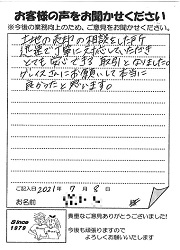 お客様の声をお聞かせください
※今後の業務向上のため、ご意見をお聞かせください。
土地の売却の相談をした所
迅速で丁寧に対応していただき
とても安心できる取引となりました。
グレイスさんにお願いして本当に
良かったと思います。
ご記入日 2021年 7月 8日
お名前
Since
1979
貴重なご意見ありがとうございました!
今後も頑張りますので
よろしくお願いいたします